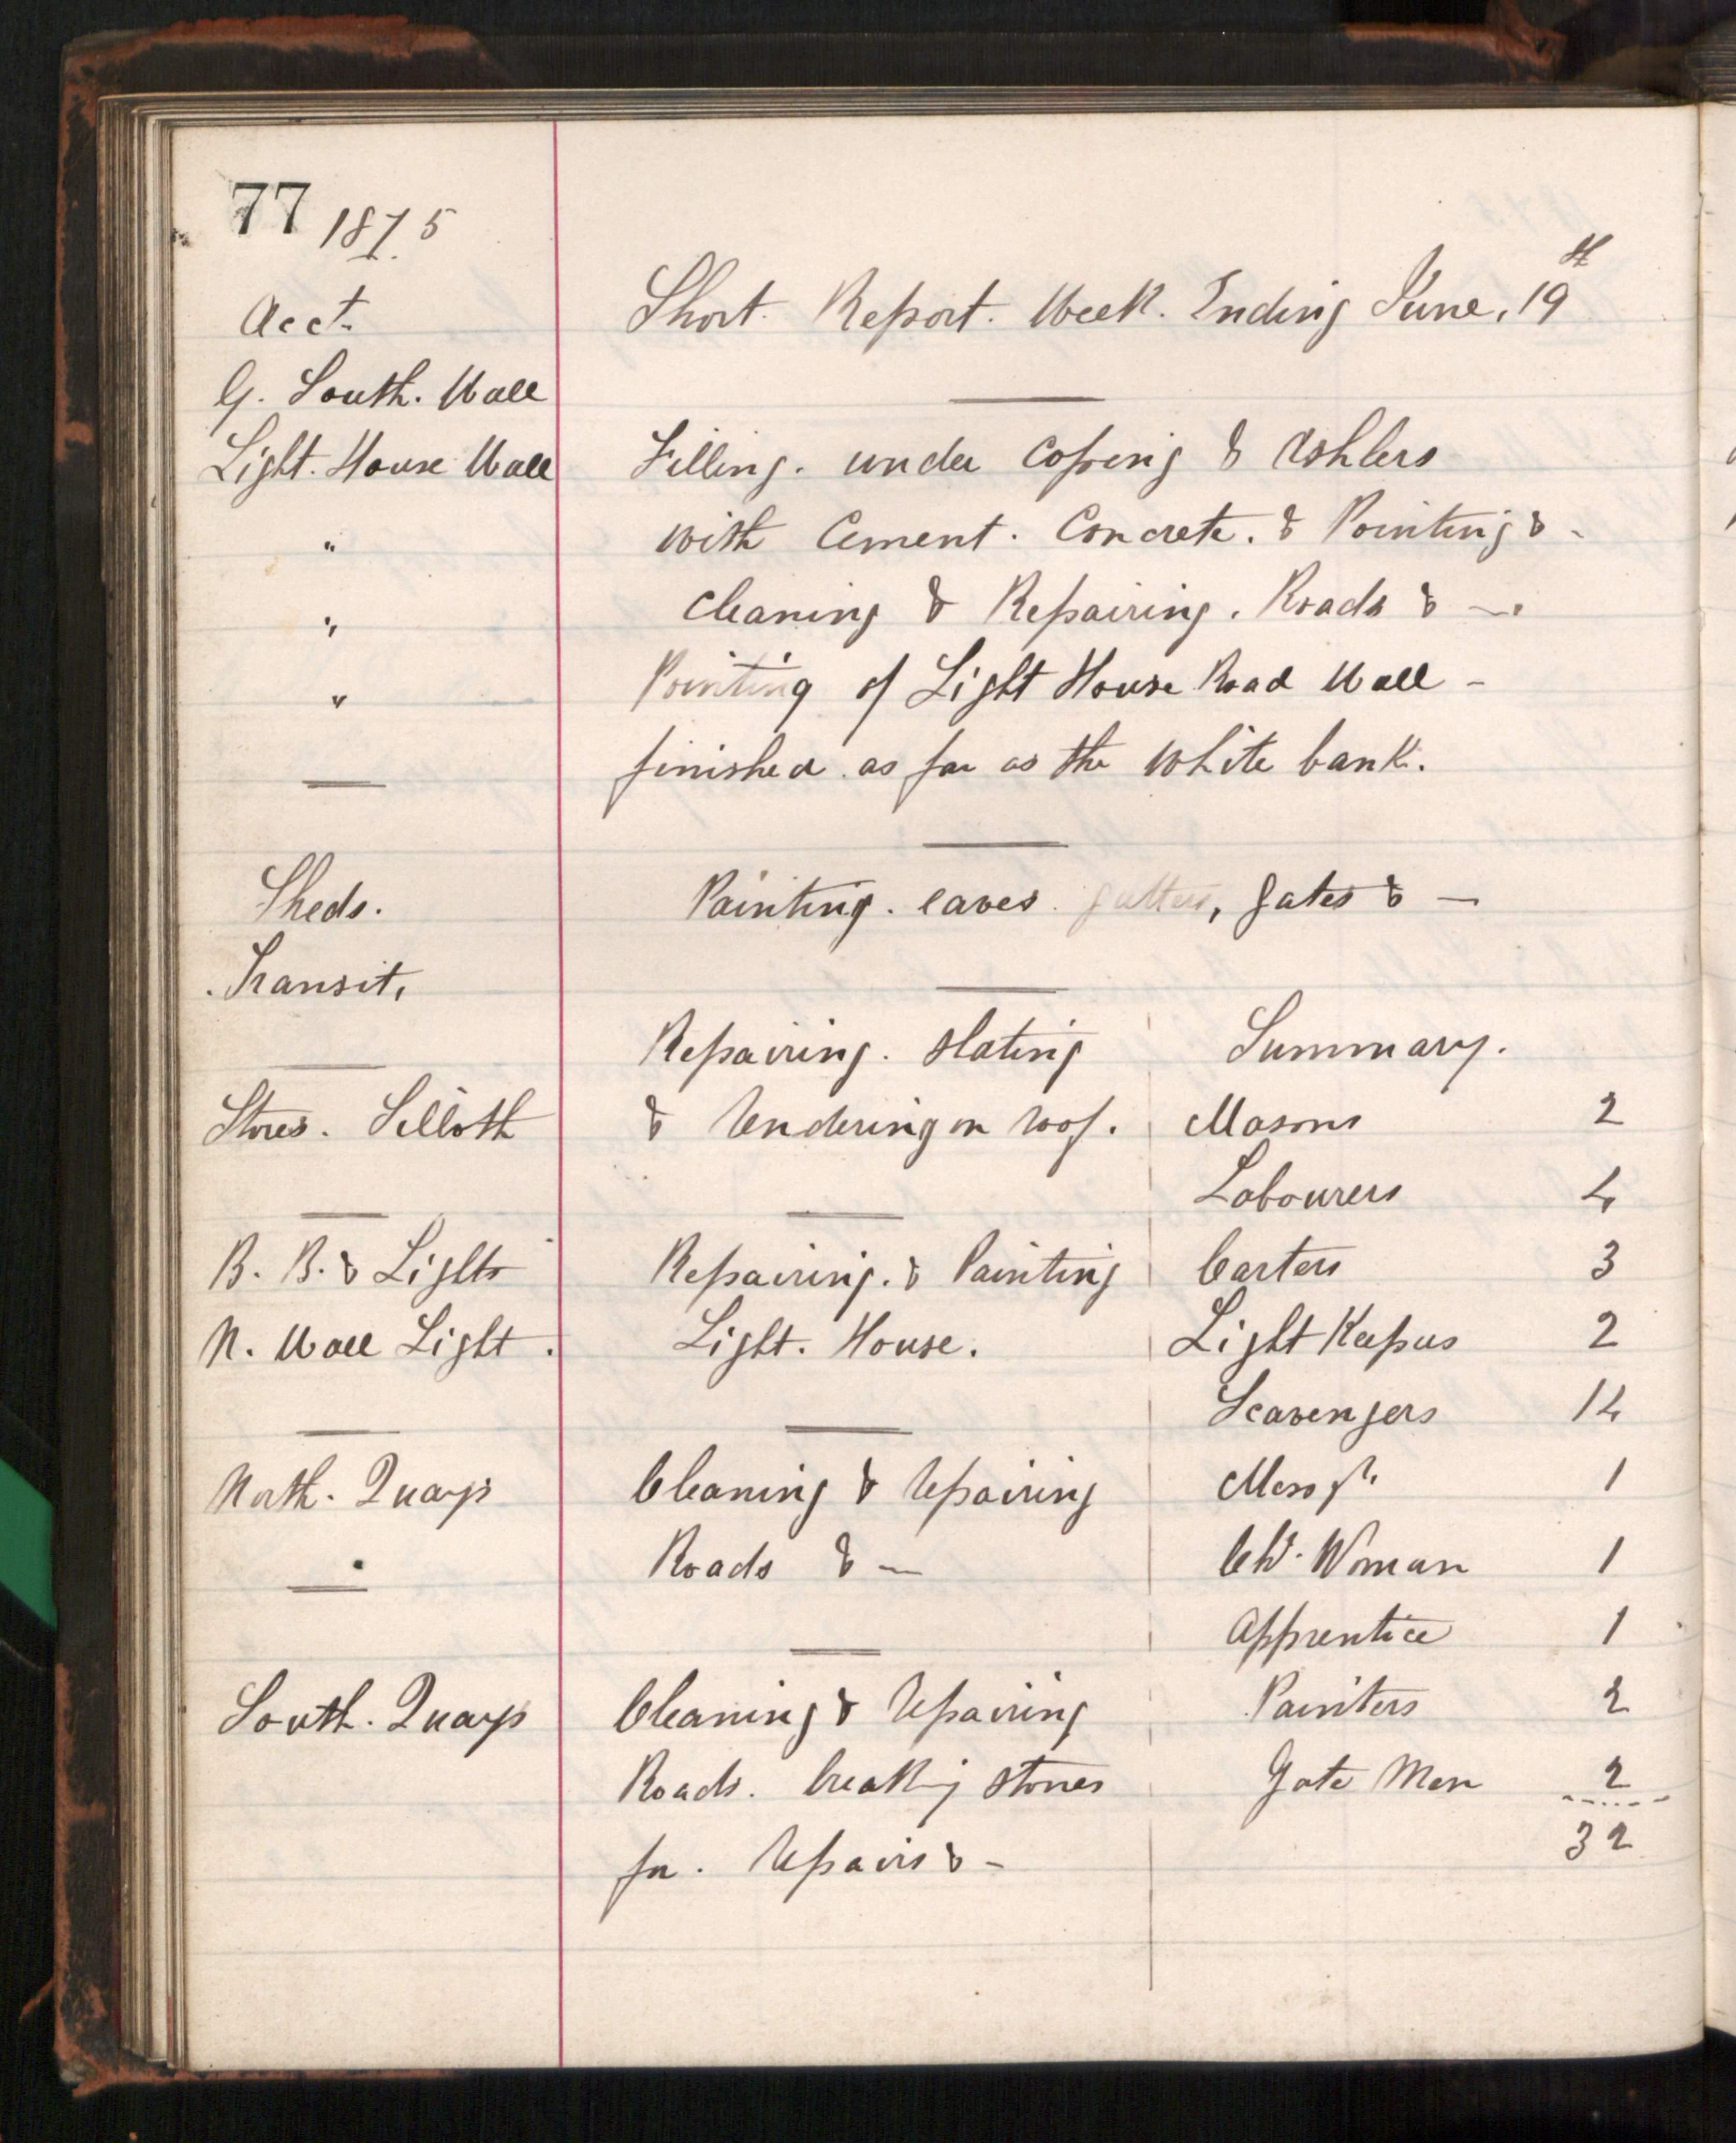 77 1875
Acct.
Short. Report. Week. Ending June. 19th
G. South. Wall
Light. House Wall
Filling. under Coping & Ashlers
" with Cement. Concrete. & Pointing & -
" Cleaning & Repairing. Roads & -.
" Pointing of Light House Road Wall -
finished as far as the White bank.
Sheds. Painting. eaves. gutters, gates & -
Transit.
Repairing. Slating
Stores. Silloth & Rendering on roof.
B. B. & Lights Repairing. & Painting
N. Wall Light. Light. House.
North. Quays Cleaning & Repairing
" Roads & -
South. Quays Cleaning & Repairing
Roads. breaking stones
for. Repairs & -
Summary.
Masons 2
Labourers 4
Carters 3
Light Keepers 2
Scavengers 14
Messgr. 1
Ch. Woman 1
Apprentice 1
Painters 2
Gate Men 2
32